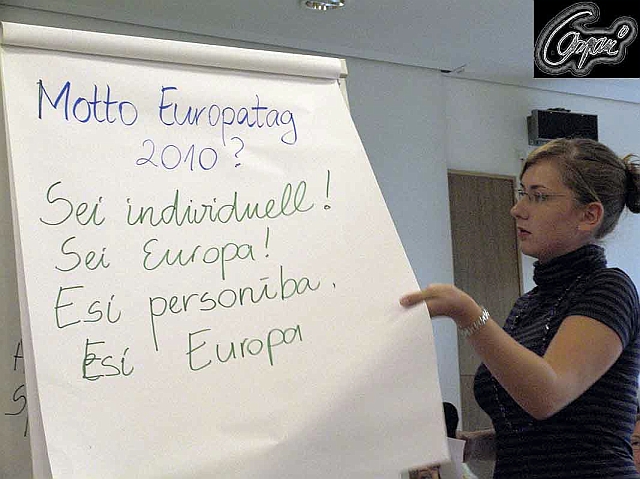 Motto Europatag
2010?
Sei individuell!
Sei Europa!
Esi personība.
Esi Europa